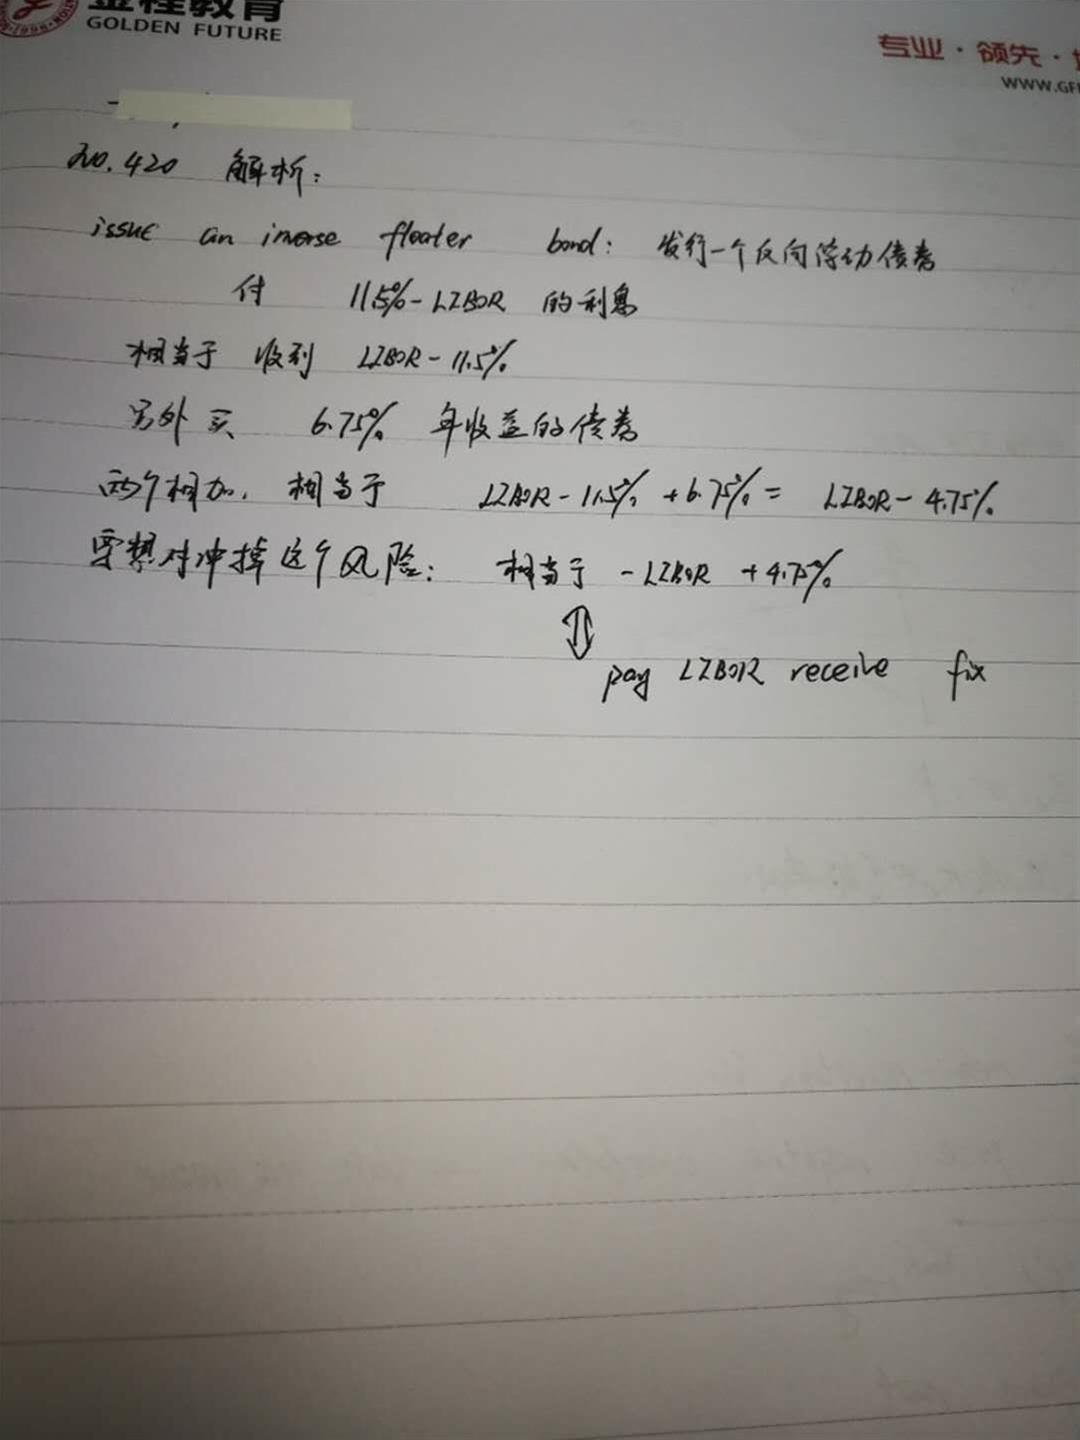 金程教育
GOLDEN FUTURE
专业·领先·
WWW.GF
No.420 解析:
issue an inverse floater bond: 发行一个反向浮动债券
付 11.5%-LIBOR 的利息
相当于 收到 LIBOR-11.5%
另外买 6.75% 年收益的债券
两个相加, 相当于 LIBOR-11.5%+6.75%= LIBOR-4.75%
要想对冲掉这个风险: 相当于 -LIBOR +4.75%
⇕
pay LIBOR receive fix